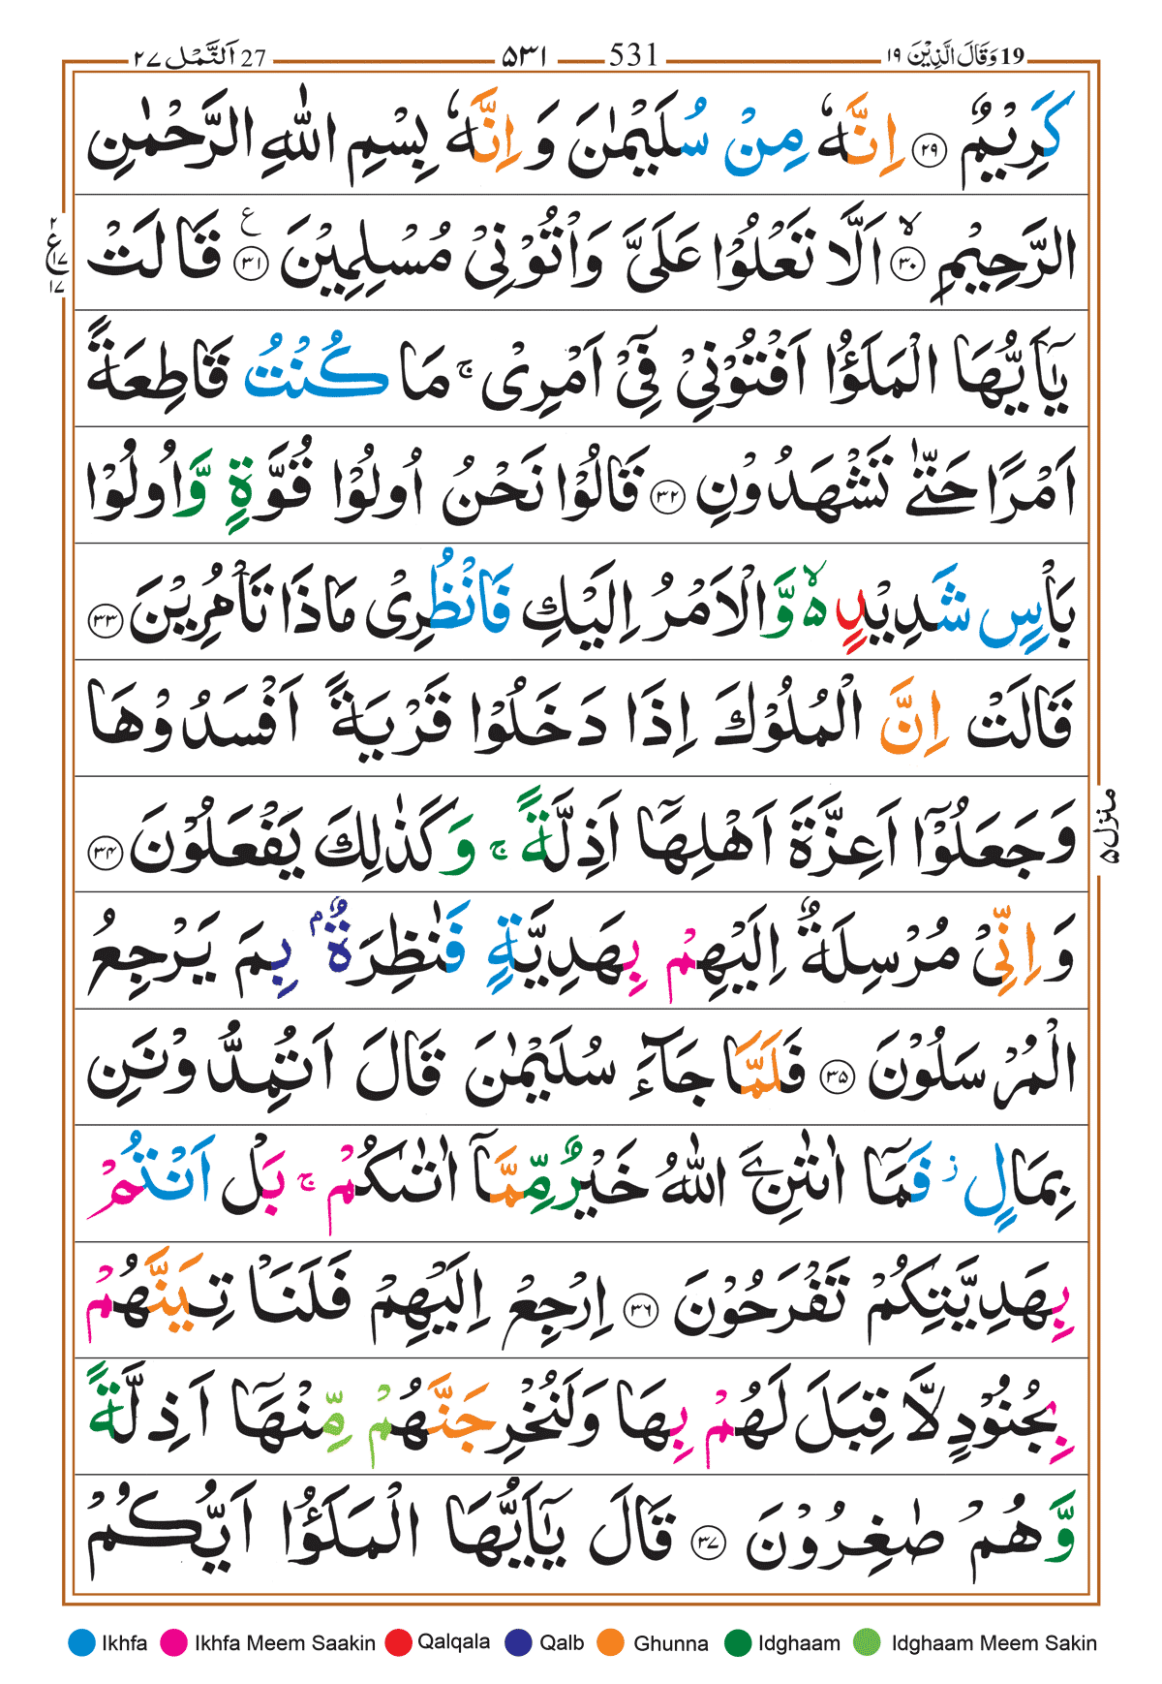 19 وَقَالَ الَّذِیْنَ ۱۹ 531 ۵۳۱ 27 اَلنَّمْل ۲۷
كَرِیْمٌ ۲۹ اِنَّهٗ مِنْ سُلَیْمٰنَ وَ اِنَّهٗ بِسْمِ اللّٰهِ الرَّحْمٰنِ
الرَّحِیْمِ ۙ۳۰ اَلَّا تَعْلُوْا عَلَیَّ وَاْتُوْنِیْ مُسْلِمِیْنَ ۳۱ ع قَالَتْ
۲ ع ۱۷ ۱۷
یٰۤاَیُّهَا الْمَلَؤُا اَفْتُوْنِیْ فِیْۤ اَمْرِیْ ۚ مَا كُنْتُ قَاطِعَةً
اَمْرًا حَتّٰی تَشْهَدُوْنِ ۳۲ قَالُوْا نَحْنُ اُولُوْا قُوَّةٍ وَّاُولُوْا
بَاْسٍ شَدِیْدٍ ۙ۬ وَّالْاَمْرُ اِلَیْكِ فَانْظُرِیْ مَاذَا تَاْمُرِیْنَ ۳۳
قَالَتْ اِنَّ الْمُلُوْكَ اِذَا دَخَلُوْا قَرْیَةً اَفْسَدُوْهَا
وَجَعَلُوْۤا اَعِزَّةَ اَهْلِهَاۤ اَذِلَّةً ۚ وَكَذٰلِكَ یَفْعَلُوْنَ ۳۴
منزل ۵
وَ اِنِّیْ مُرْسِلَةٌ اِلَیْهِمْ بِهَدِیَّةٍ فَنٰظِرَةٌۢ بِمَ یَرْجِعُ
الْمُرْسَلُوْنَ ۳۵ فَلَمَّا جَآءَ سُلَیْمٰنَ قَالَ اَتُمِدُّوْنَنِ
بِمَالٍ ؗ فَمَاۤ اٰتٰىنِۦَ اللّٰهُ خَیْرٌ مِّمَّاۤ اٰتٰىكُمْ ۚ بَلْ اَنْتُمْ
بِهَدِیَّتِكُمْ تَفْرَحُوْنَ ۳۶ اِرْجِعْ اِلَیْهِمْ فَلَنَاْتِیَنَّهُمْ
بِجُنُوْدٍ لَّا قِبَلَ لَهُمْ بِهَا وَلَنُخْرِجَنَّهُمْ مِّنْهَاۤ اَذِلَّةً
وَّ هُمْ صٰغِرُوْنَ ۳۷ قَالَ یٰۤاَیُّهَا الْمَلَؤُا اَیُّكُمْ
Ikhfa Ikhfa Meem Saakin Qalqala Qalb Ghunna Idghaam Idghaam Meem Sakin